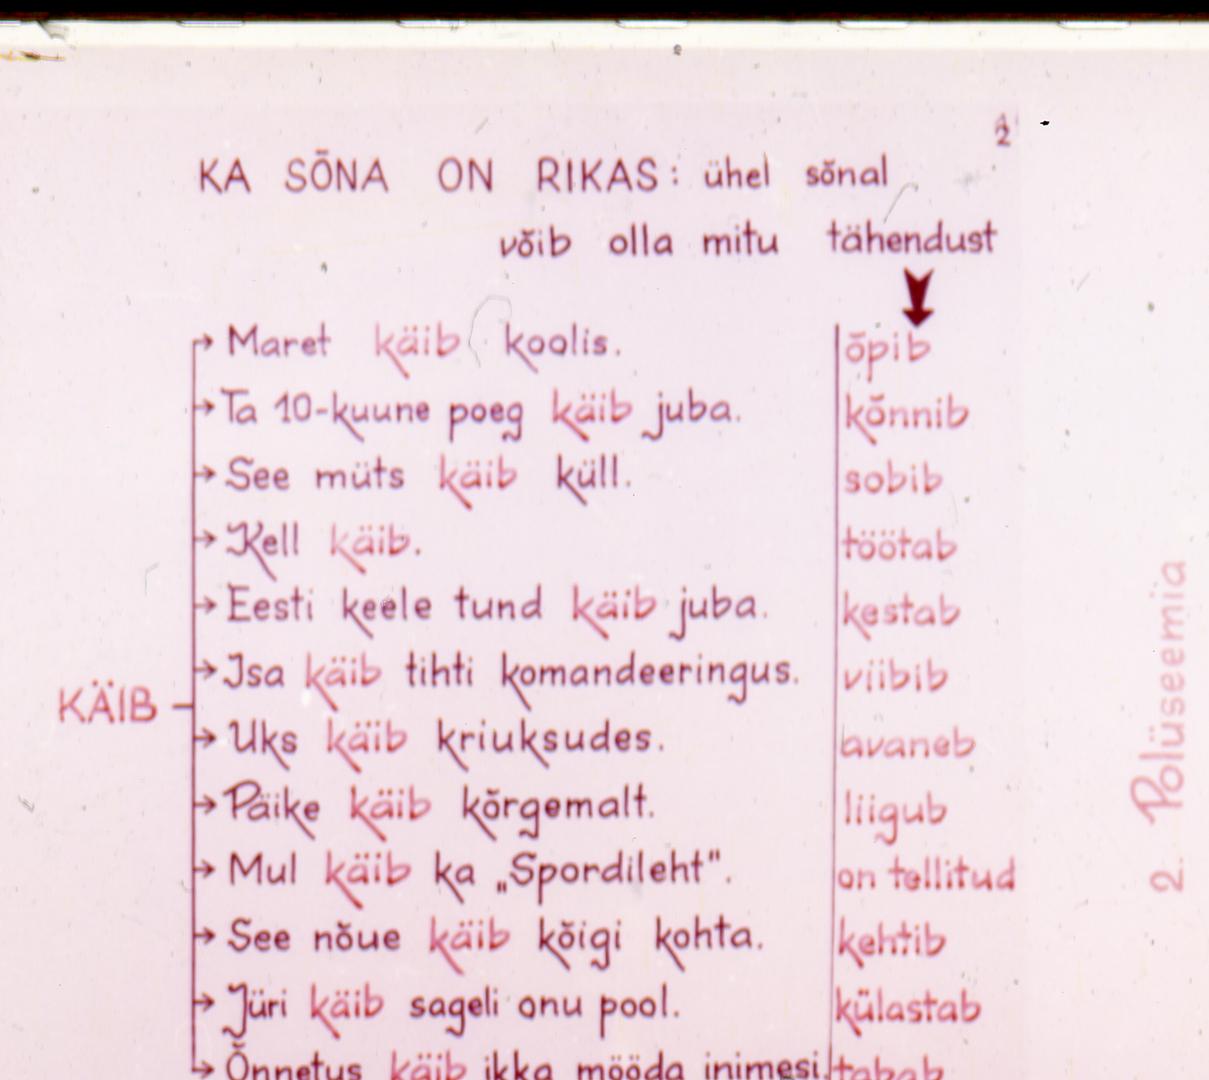 2
KA SÕNA ON RIKAS: ühel sõnal
võib olla mitu tähendust
Maret käib koolis. õpib
Ta 10-kuune poeg käib juba. kõnnib
See müts käib küll. sobib
Kell käib. töötab
Eesti keele tund käib juba. kestab
Isa käib tihti komandeeringus. viibib
KÄIB
Uks käib kriuksudes. avaneb
Päike käib kõrgemalt. liigub
Mul käib ka „Spordileht". on tellitud
See nõue käib kõigi kohta. kehtib
Jüri käib sageli onu pool. külastab
Õnnetus käib ikka mööda inimesi. tabab
2. Polüseemia